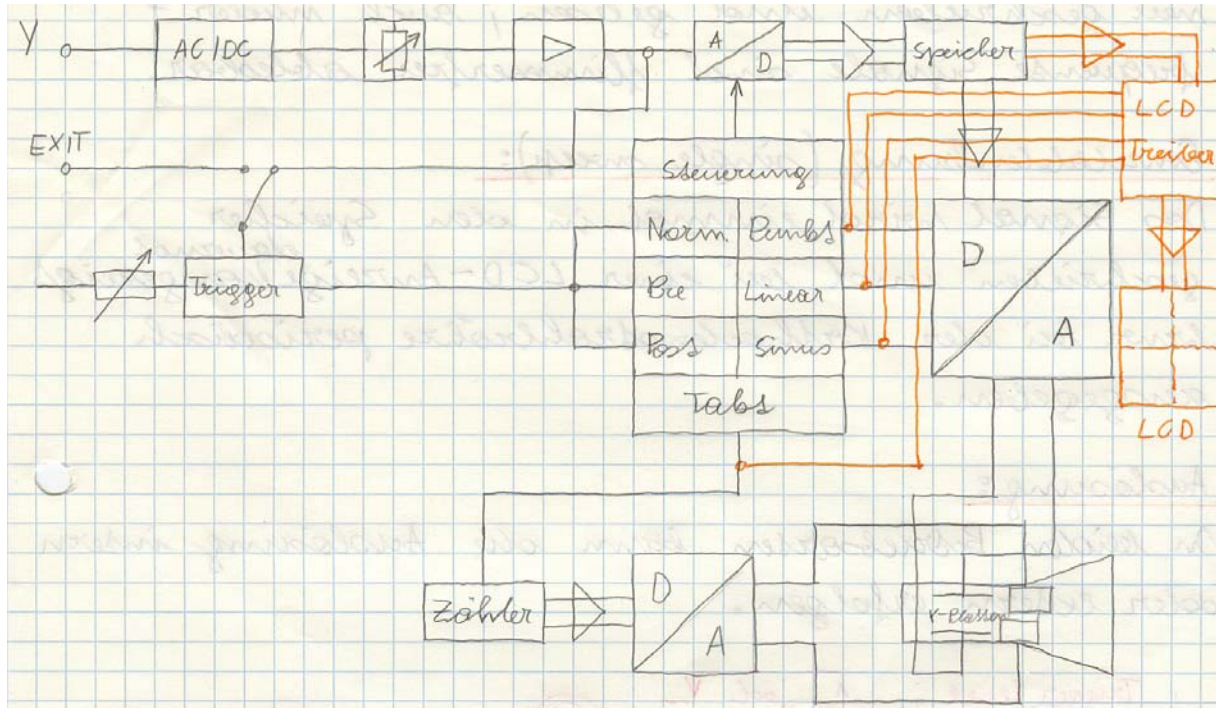 Y
AC/DC
A
D
Speicher
LCD
Treiber
EXIT
Steuerung
Norm.
Punkt
Pre
Linear
Post
Sinus
Tabs
Trigger
D
A
LCD
Zähler
D
A